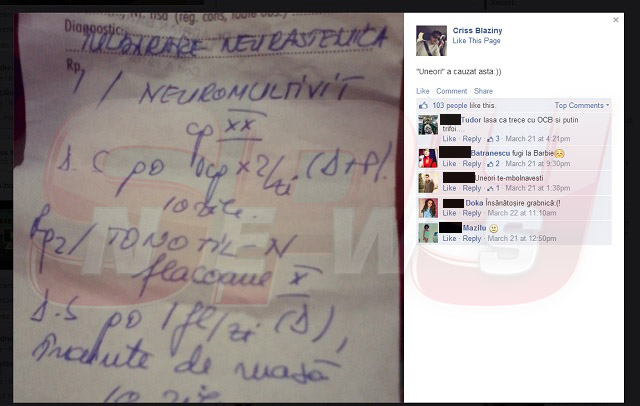 Nr. fisa (reg. cons, foaie obs.)
Diagnostic:
TULBURARE NEURASTENICA
Rp
1/ NEUROMULTIVIT
cp XX
D.S po 1cp x 2/zi (D+P).
10 zile
Rp2/ TONOTIL N
flacoane X
D.S po 1 fl/zi (D),
înainte de masă
10 zile
SPY
NEWS
Criss Blaziny
Like This Page
"Uneori" a cauzat asta:))
Like · Comment · Share
103 people like this.
Top Comments
Tudor Iasa ca trece cu OCB si putin
trifoi...
Like · Reply · 3 · March 21 at 4:21pm
Batranescu fugi la Barbie
Like · Reply · 2 · March 21 at 9:30pm
Uneori te-mbolnavesti
Like · Reply · 1 · March 21 at 1:38pm
Doka Însănătoșire grabnică:(!
Like · Reply · March 22 at 11:10am
Mazilu
Like · Reply · March 21 at 12:50pm